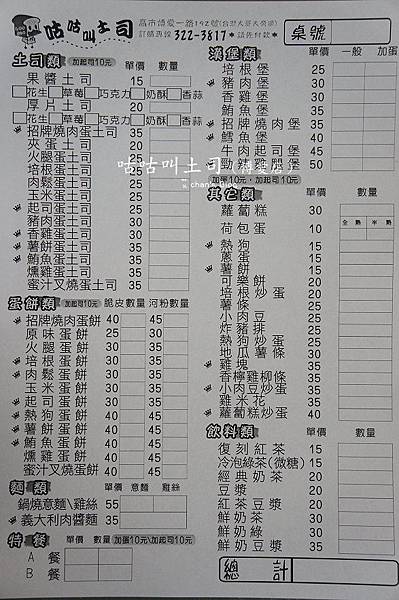 咕咕叫土司
高市博愛一路192號(台灣大哥大旁邊)
訂購專線 322-3817 *請先付款*
桌號
土司類 加起司10元 單價 數量
果醬土司 15
花生 草莓 巧克力 奶酥 香蒜
厚片土司 20
花生 草莓 巧克力 奶酥 香蒜
招牌燒肉蛋土司 35
夾蛋土司 20
火腿蛋土司 25
培根蛋土司
肉鬆蛋土司
玉米蛋土司
起司蛋土司
豬肉蛋土司
香雞蛋土司
薯餅蛋土司
鮪魚蛋土司
燻雞蛋土司
蜜汁叉燒蛋土司
蛋餅類 加起司10元 脆皮 數量 河粉 數量
招牌燒肉蛋餅 40 45
原味蛋餅 25 30
火腿蛋餅 30 35
培根蛋餅 30 35
肉鬆蛋餅 30 35
玉米蛋餅 30 35
起司蛋餅 30 35
熱狗蛋餅 40 45
薯餅蛋餅 40 45
鮪魚蛋餅 40 45
燻雞蛋餅 40 45
蜜汁叉燒蛋餅 40 45
麵類 單價 意麵 雞絲
鍋燒意麵\雞絲 55
義大利肉醬麵 35
特餐 單價 數量 加蛋10元\加起司10元
A餐
B餐
漢堡類 單價 一般 加蛋
培根堡 25
豬肉堡 30
香雞堡 30
薯餅堡 30
招牌燒肉堡 35
鱈魚堡 35
牛肉起司堡 50
勁辣雞腿堡 50
加蛋10元,加起司10元
其它類 單價 數量
蘿蔔糕 30
全熟 半熟
荷包蛋 10
熱狗 15
蔥蛋 15
薯餅 20
可樂餅 20
培根炒蛋 30
薯條 30
小肉豆 35
炸豬排 35
熱狗炒蛋 35
地瓜薯條 35
雞塊 35
香檸雞柳條 35
小肉豆炒蛋 35
雞米花 35
蘿蔔糕炒蛋 40
飲料類 單價 數量
復刻紅茶 15
冷泡綠茶(微糖) 15
經典奶茶 20
豆漿 20
紅茶豆漿 20
鮮奶茶 30
鮮奶綠 30
鮮奶豆漿 35
總計
咕咕叫土司(博愛店)